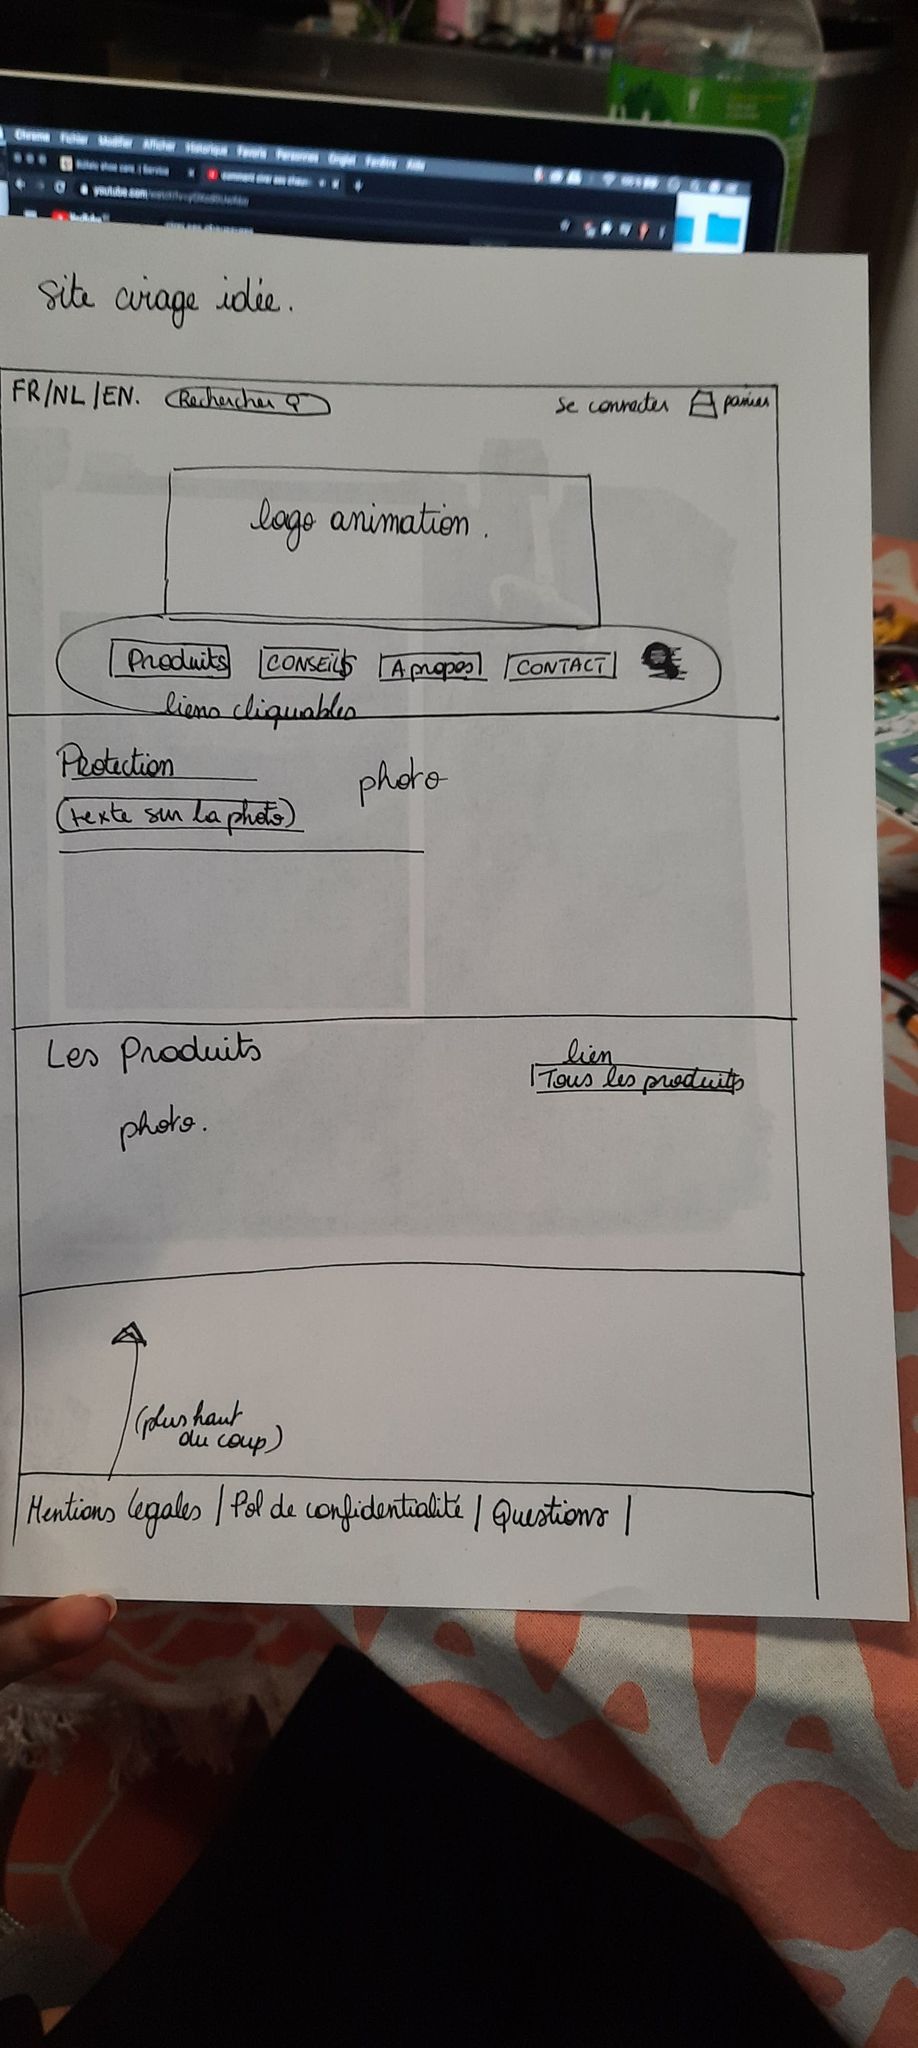 Chrome Fichier Modifier Afficher Historique Favoris Personnes Onglet Fenêtre Aide
youtube.com
YouTube
Site cirage idée.
FR/NL/EN. Rechercher Se connecter panier
logo animation.
Produits CONSEILS A propos CONTACT
liens cliquables
Protection
photo
(texte sur la photo)
Les Produits
lien
Tous les produits
photo.
(plus haut
du coup)
|Mentions Légales | Pol de confidentialité | Questions |